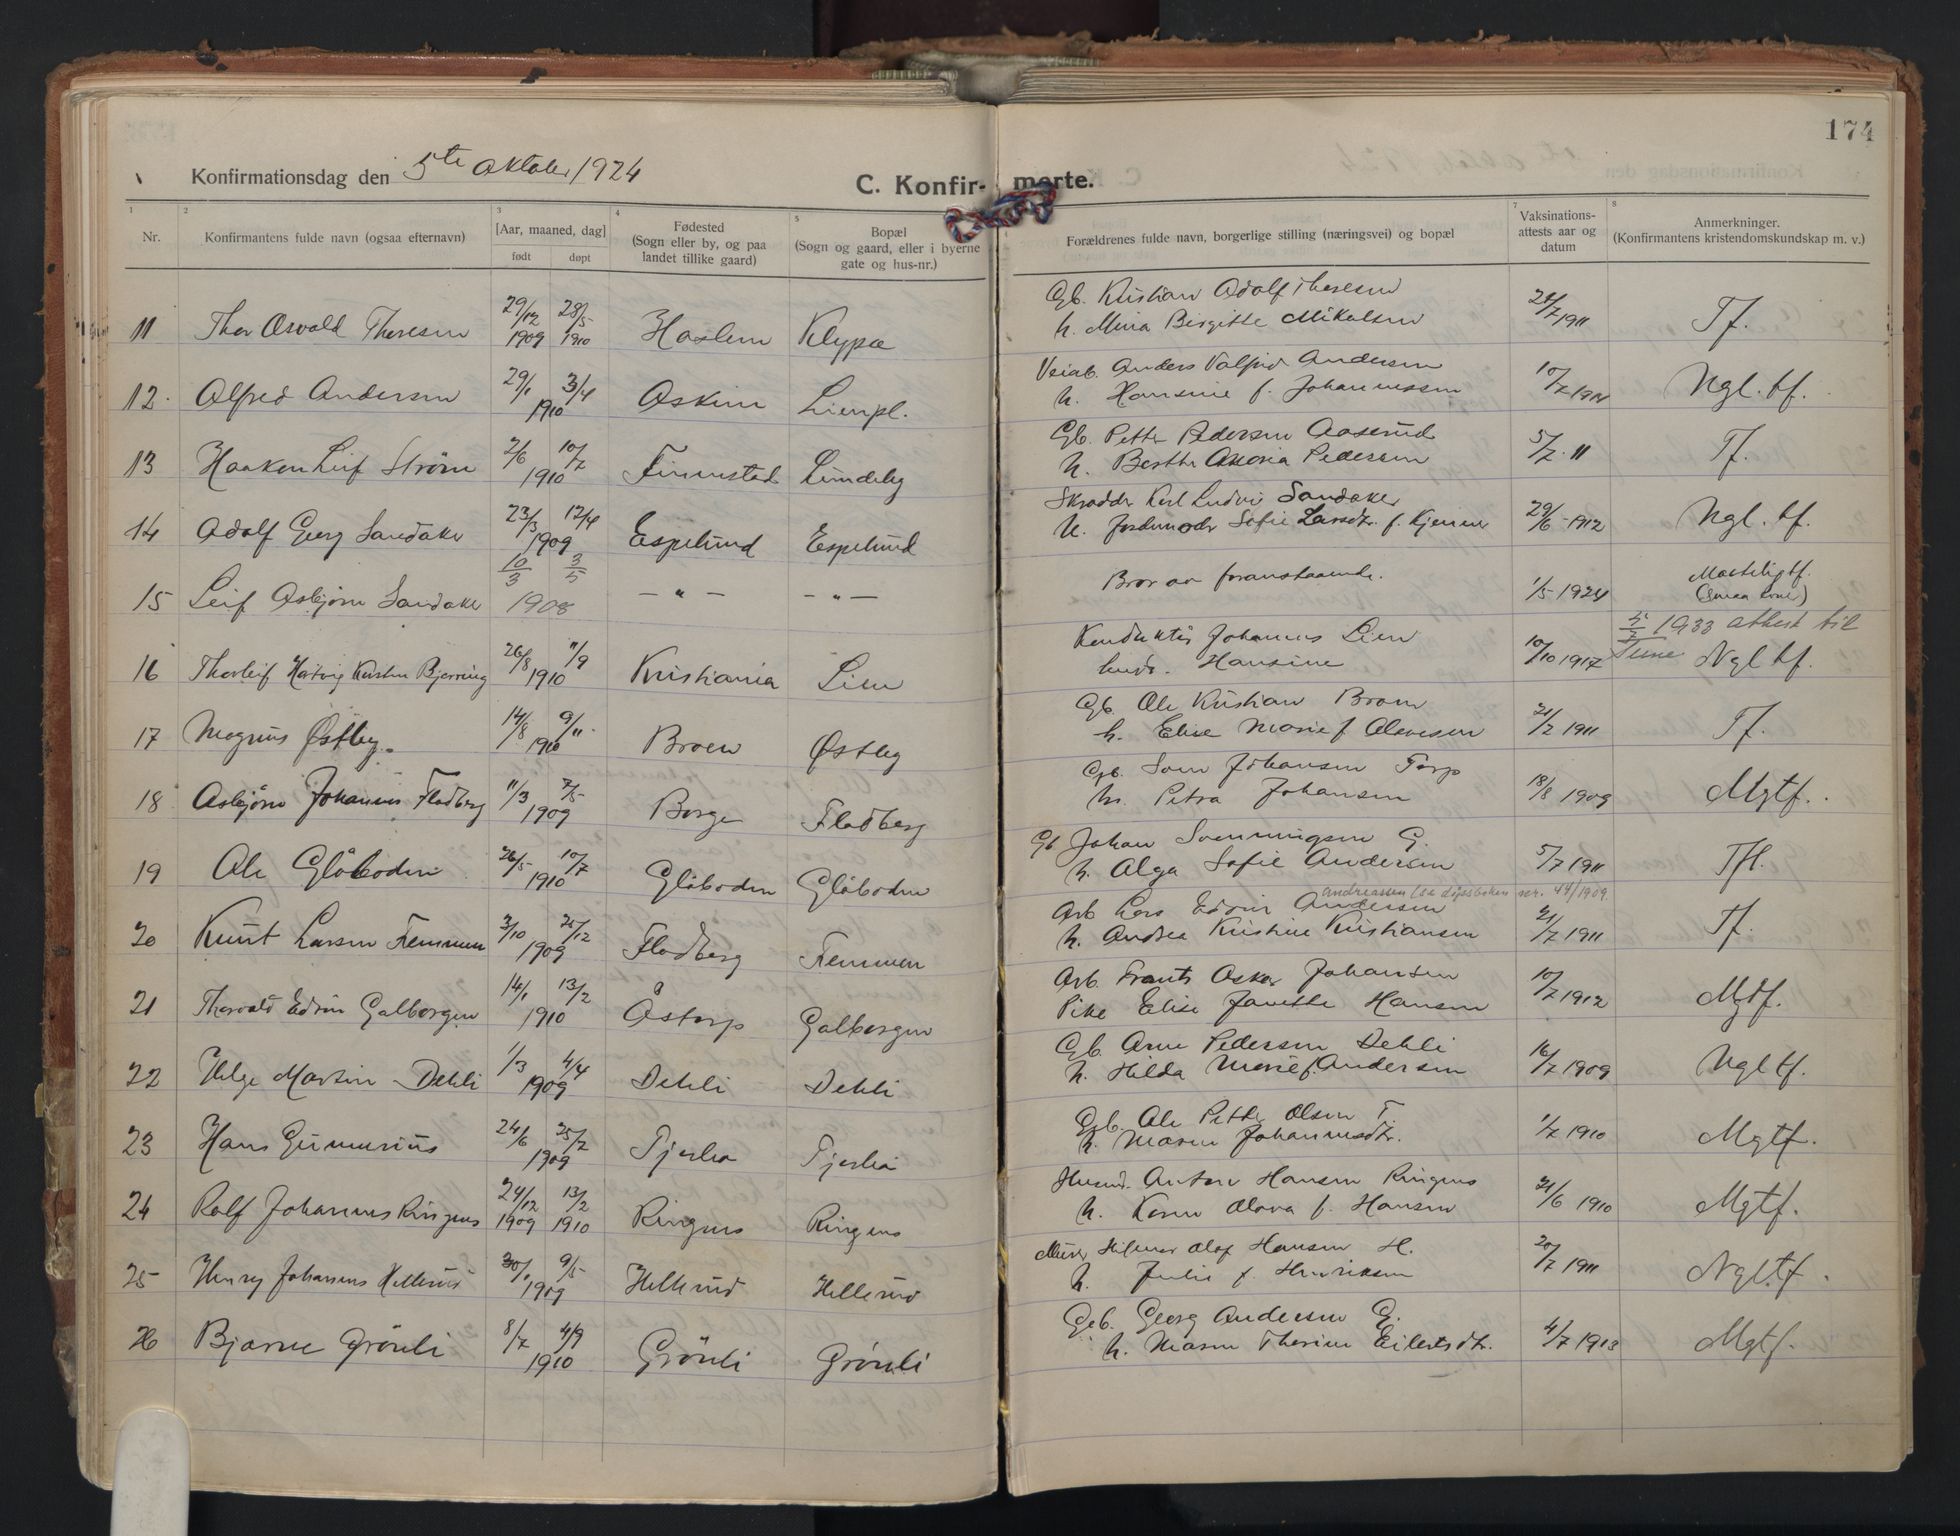 174
Konfirmationsdag den 5te Oktober 1924
C. Konfirmerte.
1 2 3 4 5 7 8
Nr. Konfirmantens fulde navn (ogsaa efternavn) [Aar, maaned, dag] født døpt Fødested (Sogn eller by, og paa landet tillike gaard) Bopæl (Sogn og gaard, eller i byerne gate og hus-nr.) Forældrenes fulde navn, borgerlige stilling (næringsvei) og bopæl Vaksinations-attests aar og datum Anmerkninger. (Konfirmantens kristendomskundskap m. v.)
11 Thor Osvald Theresen 29/12 1909 28/5 1910 Haslem Klypa Gb. Kristian Adolf Theresen
h. Mina Birgitte Mikalsen /7 1911 Tf.
12. Alfred Andersen 29/1 3/4 1910 Askim Lienpl. Veiarb. Anders Valfrid Andersen
h. Hansine f. Johannessen 10/7 Ngl. tf.
13 Haakon Leif Strøm 2/6 10/7 1910 Finnestad Lundeby Gb. Petter Pedersen Aaserud
h. Berthe Maria Pedersen 5/7 11 Tf.
14 Adolf Georg Sandaker 23/3 12/4 1909 Espelund Espelund Skrædder Karl Ludvig Sandaker
h. Jordemoder Sofie Larsdtr. f. Kjenner 29/6 1912 Ngl. tf.
15 Leif Asbjørn Sandaker 10/3 3/5 1908 — " — — " — Bror av foranstaaende. 1/5 1924 Maatelig tf.
5/7 1933 attest til Tune
16 Thorleif Hartvig Kristen Bjerring 26/8 11/9 1910 Kristiania Lien Konduktør Johannes Lien
hust. Hansine 10/10 1917 Ngl tf.
17 Magnus Østby 14/8 9/11 1910 Braten Østby Gb. Ole Kristian Braten
h. Elise Marie f. Olavesen 21/7 1911 Tf.
18 Asbjørn Johannes Fladberg 11/3 2/5 1909 Borge Fladberg Gb. Johansen Torp
h. Petra Johansen 18/8 1909 Mgtf.
19 Ole Glåboden 26/5 10/7 1910 Glåboden Glåboden Gb Johan Svenningsen G.
h. Alga Sofie Andersen 5/7 1911 Tfl.
Andreassen (se dåpsboken nr. 44/1909
20 Knut Larsen Remmen 3/10 25/12 1909 Fladberg Remmen Arb Lars Edvin Andersen
h. Andrea Kristine Kristiansen 21/7 1911 Tf.
21 Thorvald Edvin Galborgen 14/1 13/2 1910 Åstorp Galborgen Arb Frants Oskar Johansen
Pike Elise Janette Hansen 10/7 1912 Mgtf.
22 Helge Martin Dehli 1/3 4/4 1909 Dehli Dehli Gb. Arne Pedersen Dehli
h. Hilda Marie f. Andersen 16/7 1909 Ngl tf.
23 Hans Gunnerius 24/6 25/7 1909 Gb. Ole Petter Olsen T.
h. Maren Johannesdtr. 1/7 1910 Mgtf.
24 Rolf Johannes Ringnes 24/12 1909 13/2 1910 Ringnes Ringnes Husmd. Anton Hansen Ringnes
h. Karen Olava f. Hansen 21/6 1910 Mgtf.
25 Henry Johannes Hellerud 30/1 9/5 1909 Hellerud Hellerud Murer Hilmar Olaf Hansen H.
h. Julie f. Henriksen 20/7 1911 Ngl. tf.
26 Bjarne Grönli 8/7 4/9 1910 Grönli Grönli Geb. Georg Andersen G.
h. Maren Therine Eilertsdtr. 4/7 1913 Mgtf.